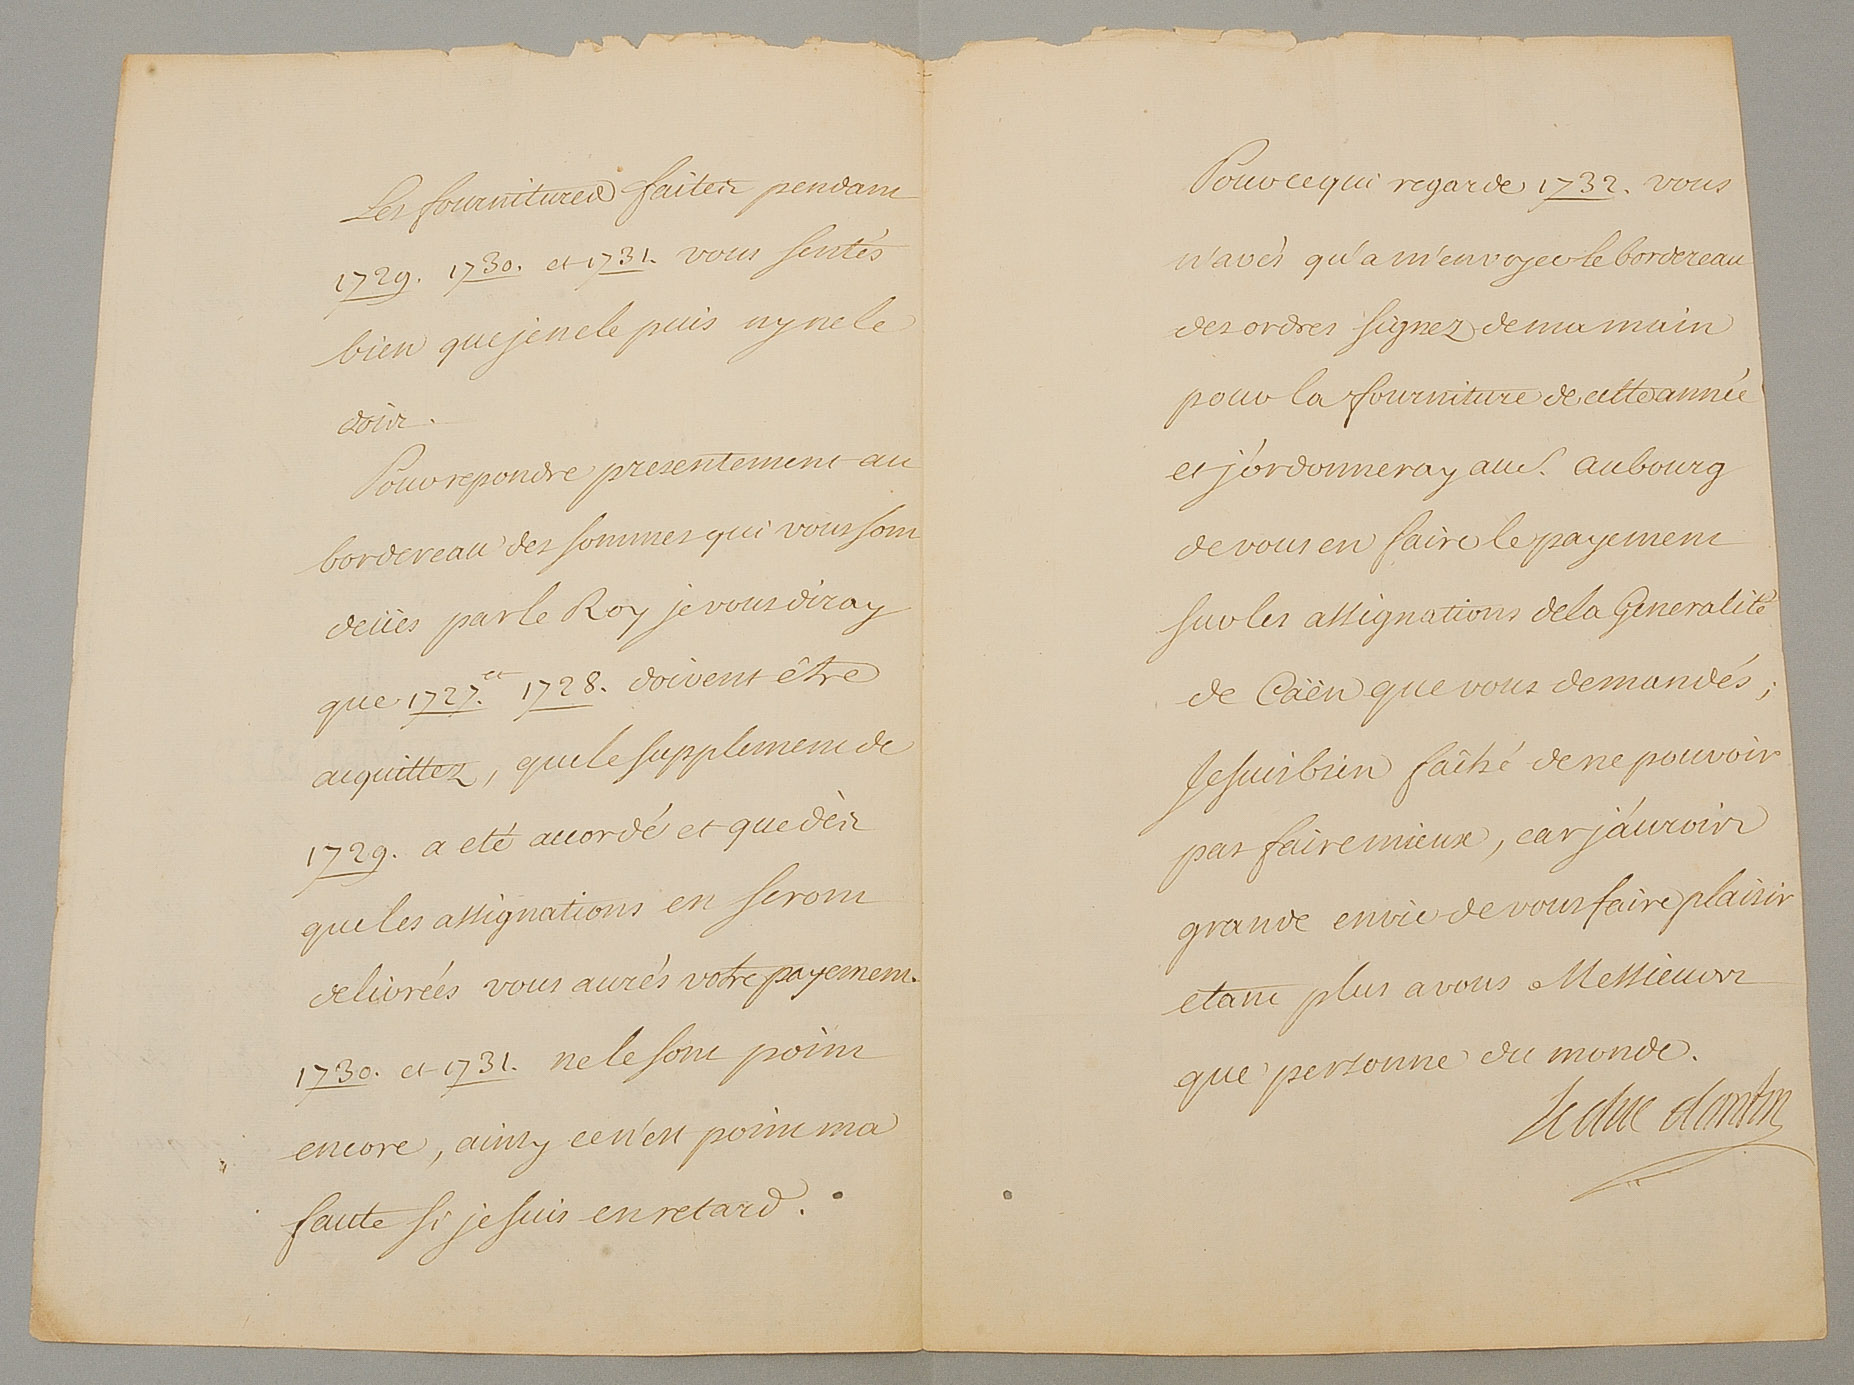 Les fournitures faites pendant
1729. 1730. et 1731. vous sentés
bien que je ne le puis ny ne le
dois.
Pour repondre presentement au
bordereau des sommes qui vous sont
deües par le Roy je vous diray
que 1727. et 1728. doivent être
acquittez, que le supplement de
1729. a eté accordé et que dès
que les assignations en seront
delivrées vous aurés votre payement.
1730. et 1731. ne le sont point
encore, ainsy ce n'est point ma
faute si je suis en retard.
Pour ce qui regarde 1732. vous
n'avés qu'a m'envoyer le bordereau
des ordres signez de ma main
pour la fourniture de cette année
et j'ordonneray au S. aubourg
de vous en faire le payement
sur les assignations de la Generalité
de Cäen que vous demandés;
Je suis bien fâché de ne pouvoir
pas faire mieux, car j'aurois
grande envie de vous faire plaisir
etant plus a vous Messieurs
que personne du monde.
le duc dantin